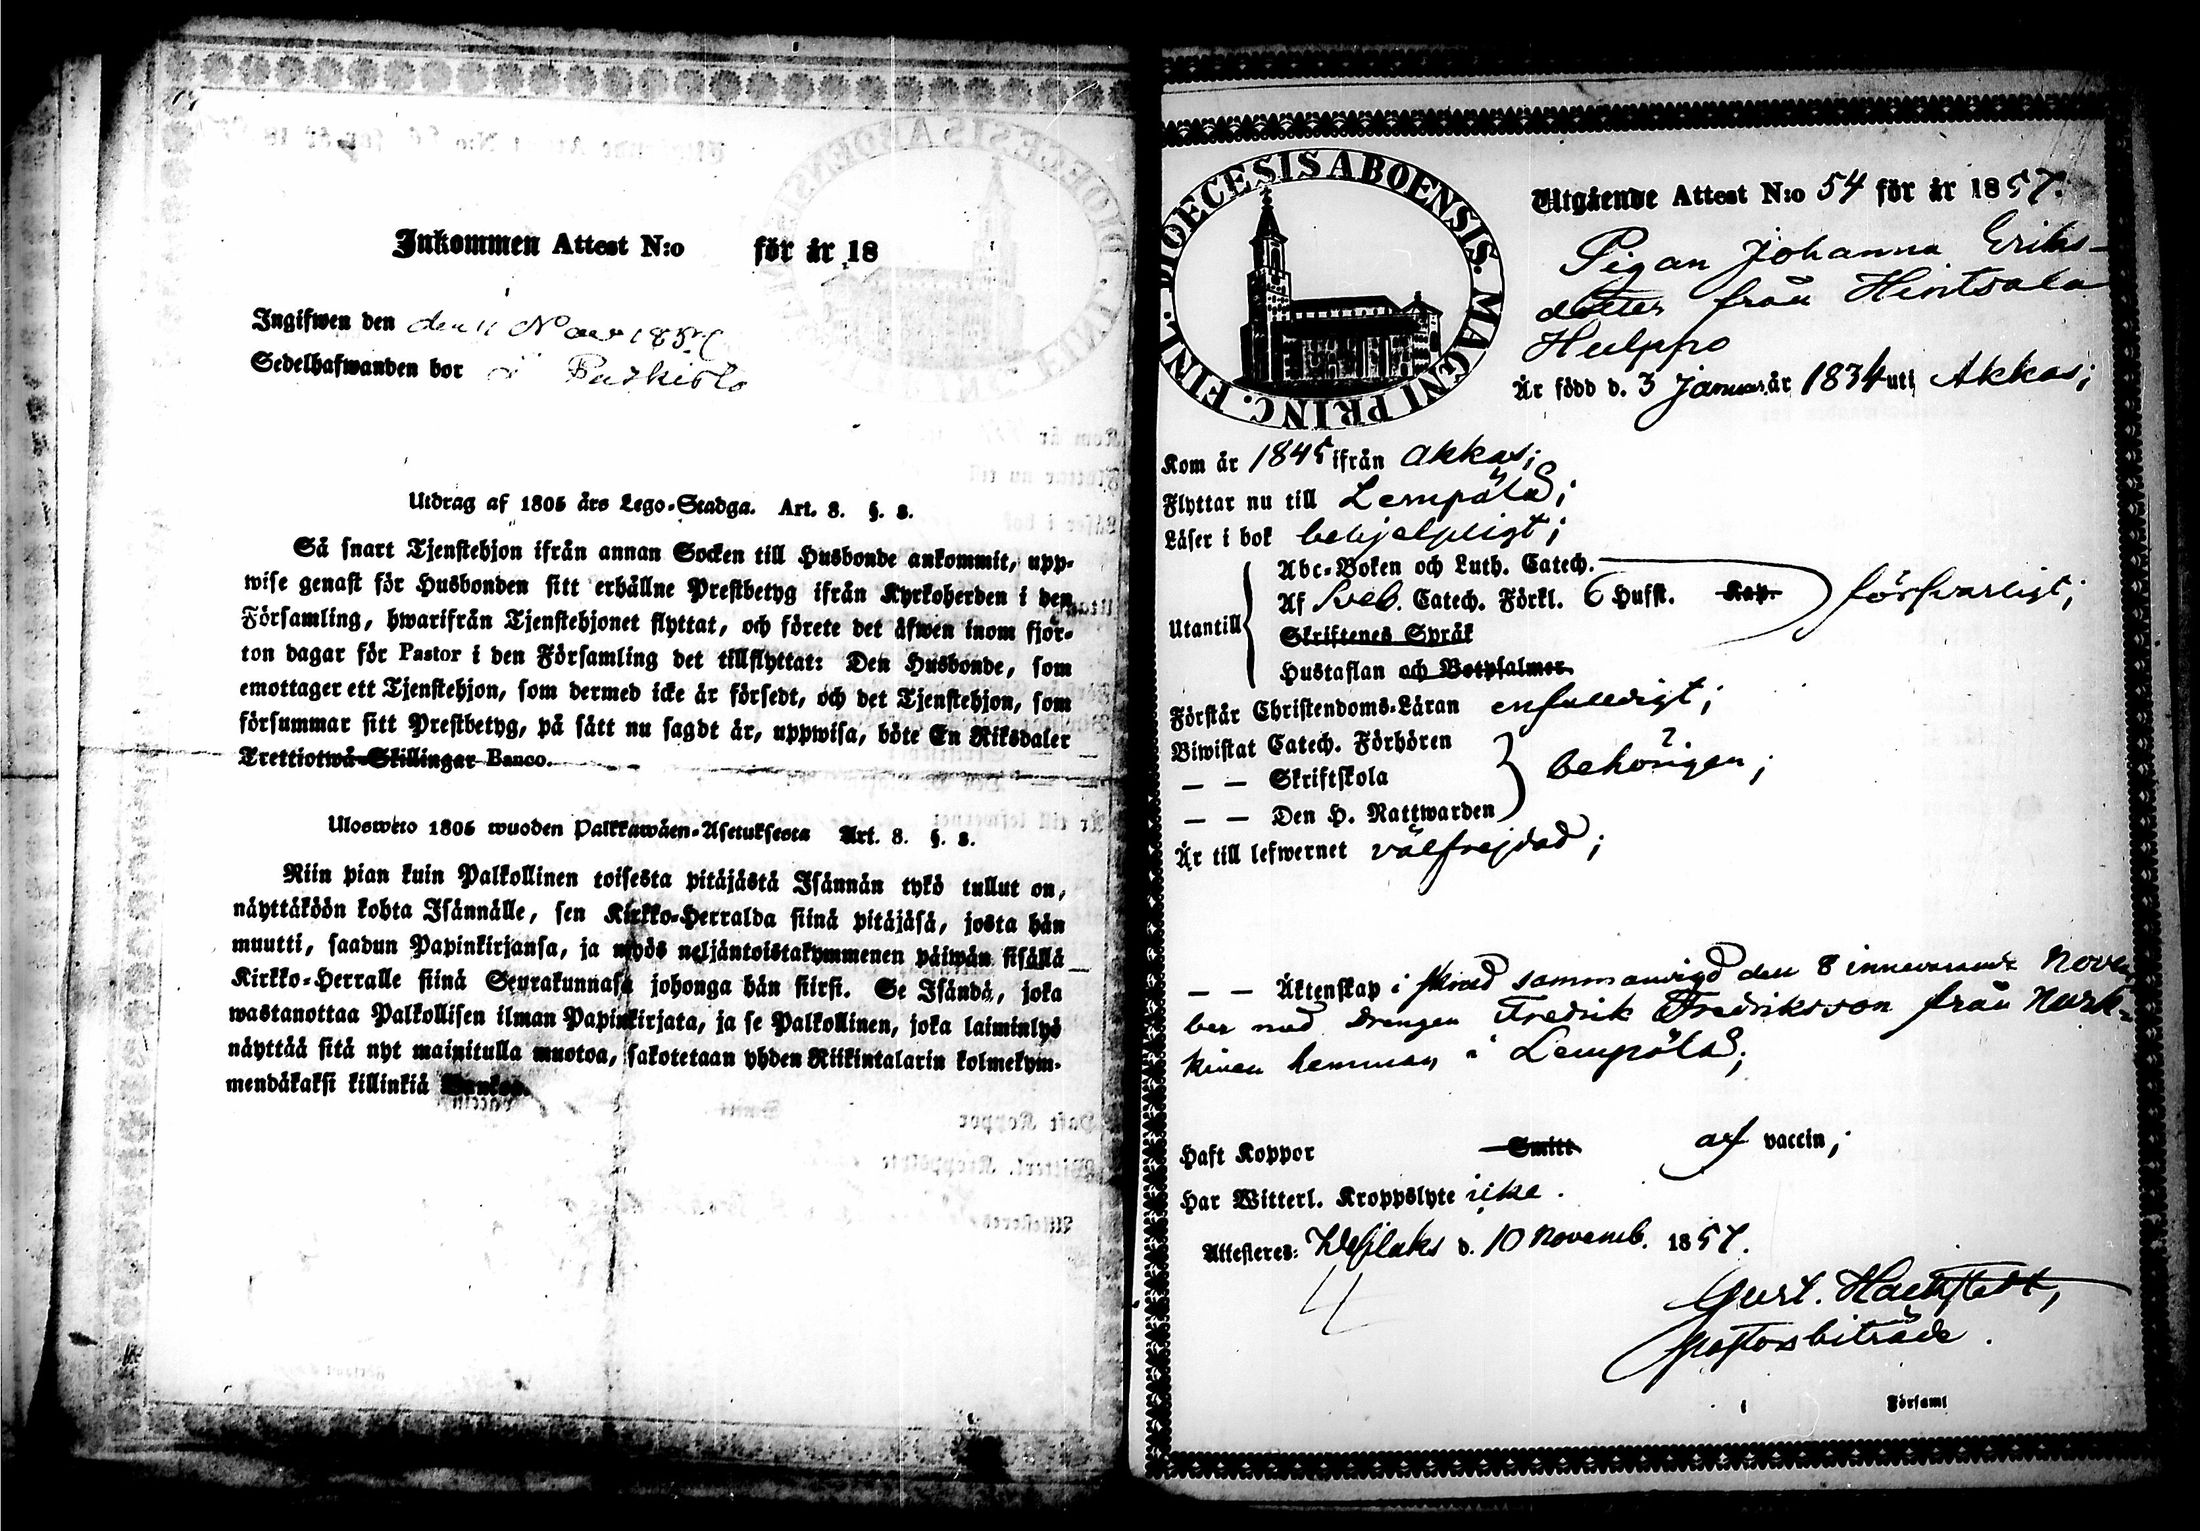 Inkommen Attest N:o för år 18
Ingifwen den den 11 Nov 1857
Sedelhafwanden bor i
Utdrag af 1805 års Lego-Stadga. Art. 8. §. 8.
Så snart Tjenstehjon ifrån annan Socken till Husbonde ankommit, upp-
wise genast för Husbonden sitt erhållne Prestbetyg ifrån Kyrkoherden i den
Församling, hwarifrån Tjenstehjonet flyttat, och förete det äfwen inom fjor-
ton dagar för Pastor i den Församling det tillflyttat: Den Husbonde, som
emottager ett Tjenstehjon, som dermed icke är försedt, och det Tjenstehjon, som
försummar sitt Prestbetyg, på sätt nu sagdt är, uppwisa, böte En Riksdaler
Trettiotwå Skillingar Banco.
Ulosweto 1805 wuoden Palkkawäen-Asetuksesta Art. 8. §. 8.
Niin pian kuin Palkollinen toisesta pitäjästä Isännän tykö tullut on,
näyttäköön kohta Isännälle, sen Kirkko-Herralda siinä pitäjäsä, josta hän
muutti, saadun Papinkirjansa, ja myös neljäntoistakymmenen päiwän sisällä
Kirkko-Herralle siinä Seurakunnasa johonga hän siirsi. Se Isändä, joka
wastanottaa Palkollisen ilman Papinkirjata, ja se Palkollinen, joka laiminlyö
näyttää sitä nyt mainitulla muotoa, sakotetaan yhden Riikintalarin kolmekym-
mendäkaksi killinkiä Bankos.
DIOECESIS ABOENSIS. MAGNI PRINC. FINL.
Utgående Attest N:o 54 för år 1857.
Pigan Johanna Eriks-
dotter från Hintsala
Hulppo
Är född d. 3 Januar. år 1834 uti Akkas;
Kom år 1845 ifrån Akkas;
Flyttar nu till Lempälä;
Läser i bok behjelpligt;
Abc-Boken och Luth. Catech.
Af Sveb. Catech. Förkl. 6 Hufst. Kap. försvarligt;
Utantill
Skriftenes Språk
Hustaflan och Botpsalmer.
Förstår Christendoms-Läran enfalldigt;
Biwistat Catech. Förhören
— — Skriftskola behörigen;
— — Den H. Nattwarden
Är till lefwernet välfrejdad;
— — Äktenskap i sammanvigd den 8 innevarande Novem
ber med Drengen Fredrik Fredriksson från Nurk-
kinen hemman i Lempälä;
Haft Koppor Smitt af vaccin;
Har Witterl. Kroppslyte icke.
Attesteres: Wesilaks d. 10 Novemb. 1857.
4
Gust. Hackstedt,
pastorsbiträde.
Församl